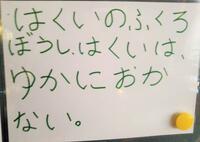 はくいのふくろ
ぼうし、はくいは、
ゆかにおか
ない。